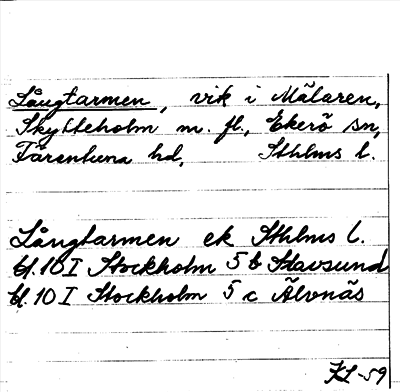 Långtarmen, vik i Mälaren,
Skytteholm m. fl., Ekerö sn,
Färentuna hd, Sthlms l.
Långtarmen ek Sthlms l.
bl. 10 I Stockholm 5 b Stavsund
bl. 10 I Stockholm 5 c Älvnäs
KL-59